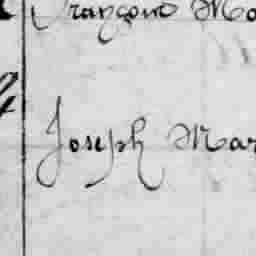 François Ma
Joseph Mar